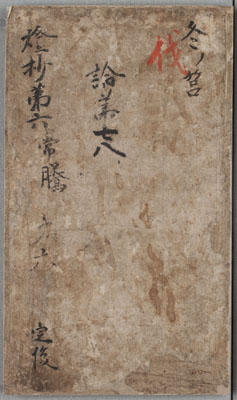 冬ノ
伐
論第七八
燈抄第六 常騰
六
定後